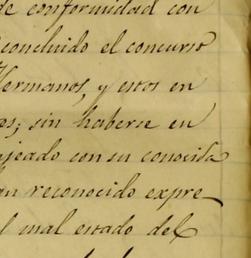 de conformidad con
concluido el concurso
Hermanos, y estos en
es; sin haberse en
ajeado con su conocida
an reconocido expre_
l mal estado del